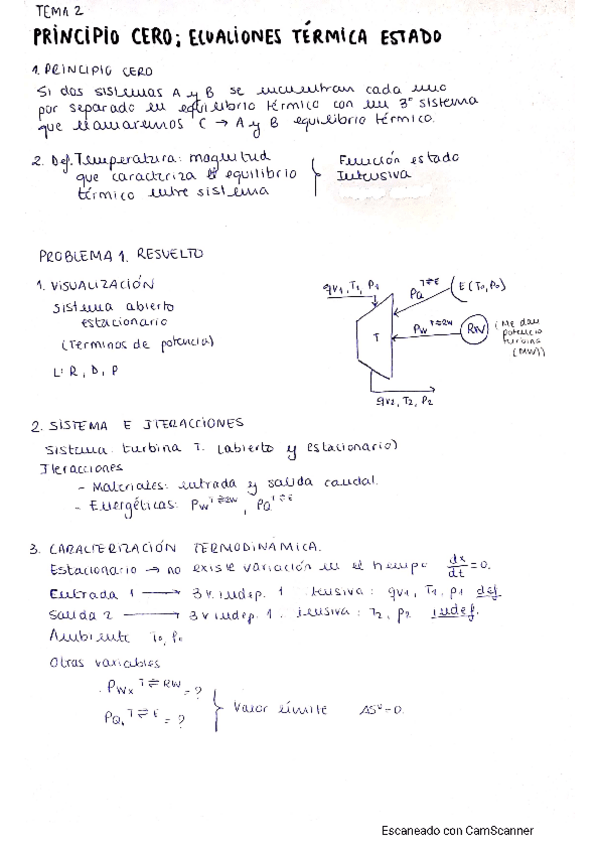 TEMA 2
PRINCIPIO CERO; ECUACIONES TÉRMICA ESTADO
1. PRINCIPIO CERO
Si dos sistemas A y B se encuentran cada uno
por separado en equilibrio térmico con un 3º sistema
que llamaremos C → A y B equilibrio térmico.
2. Def. Temperatura: magnitud
que caracteriza el equilibrio
térmico entre sistema
Función estado
Intensiva
PROBLEMA 1. RESUELTO
1. VISUALIZACIÓN
sistema abierto
estacionario
(Terminos de potencia)
L: R, D, P
qv1, T1, P1
PQ T⇌E
E (T0, P0)
T
PW T⇌RW
RW
(Me dan
potencia
turbina
(MW))
qv2, T2, P2
2. SISTEMA E ITERACCIONES
Sistema: turbina T. (abierto y estacionario)
Iteracciones
- Materiales: entrada y salida caudal.
- Energéticas: PW T⇌RW, PQ T⇌E
3. CARACTERIZACIÓN TERMODINÁMICA.
Estacionario → no existe variación en el tiempo dx/dt = 0.
Entrada 1 → 3 v. indep. 1 tensiva: qv1, T1, p1 def.
Salida 2 → 3 v indep. 1. tensiva: T2, p2 indef.
Ambiente T0, P0
Otras variables
. PWx T⇌RW = ?
PQ, T⇌E = ?
Valor límite
Escaneado con CamScanner